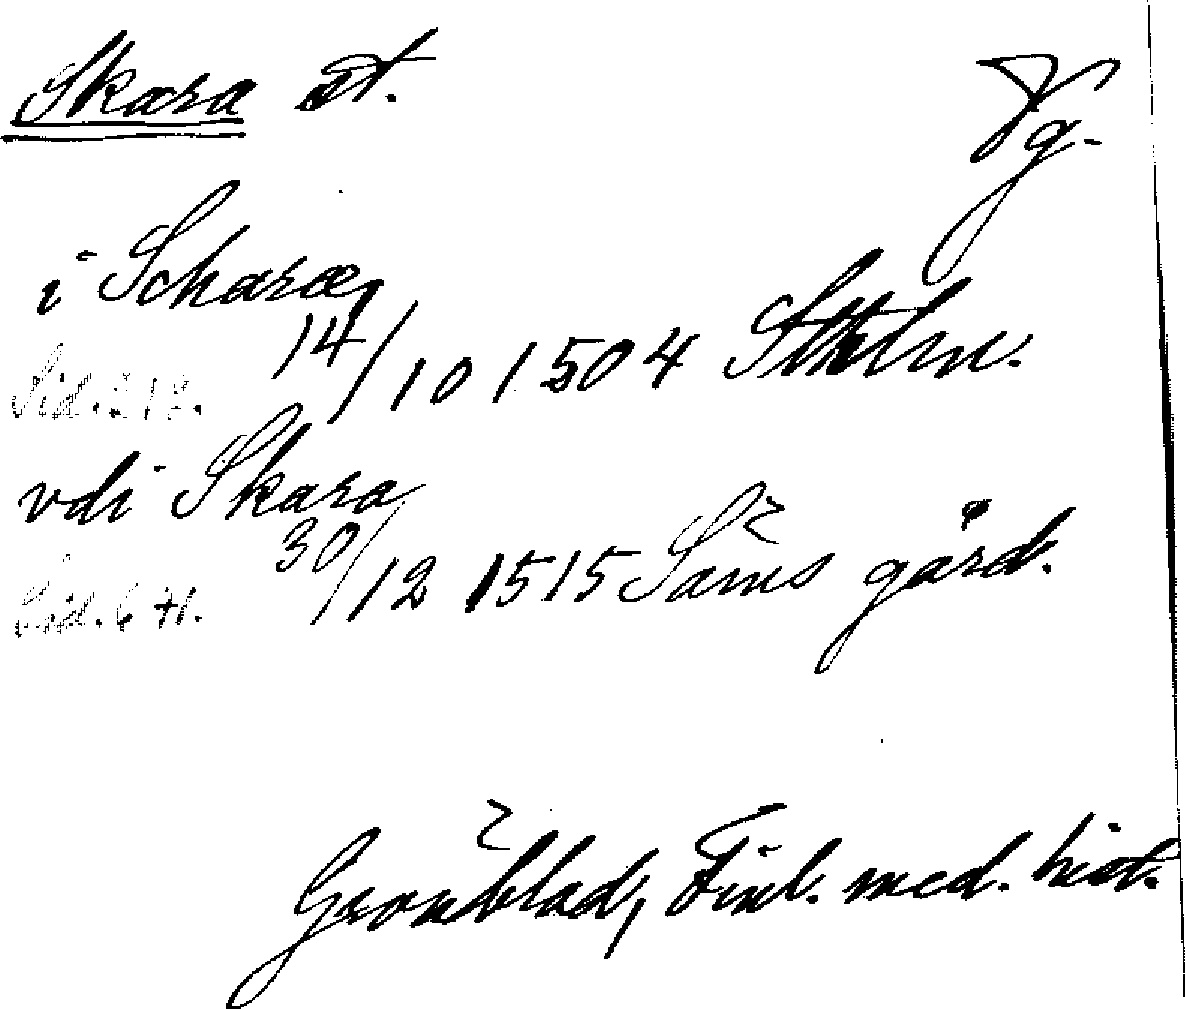 Skara st. Vg.
i Scharæ
14/10 1504 Sthlm.
Sid. 212.
vdi Skara
30/12 1515 Säms gård.
Sid. 671.
Grönblad, Finl. med. hist.